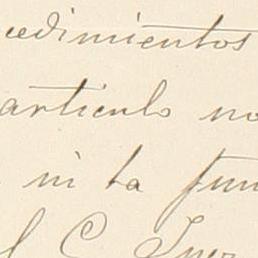 cedimientos
articulo no
ni ha fun
l C Juez